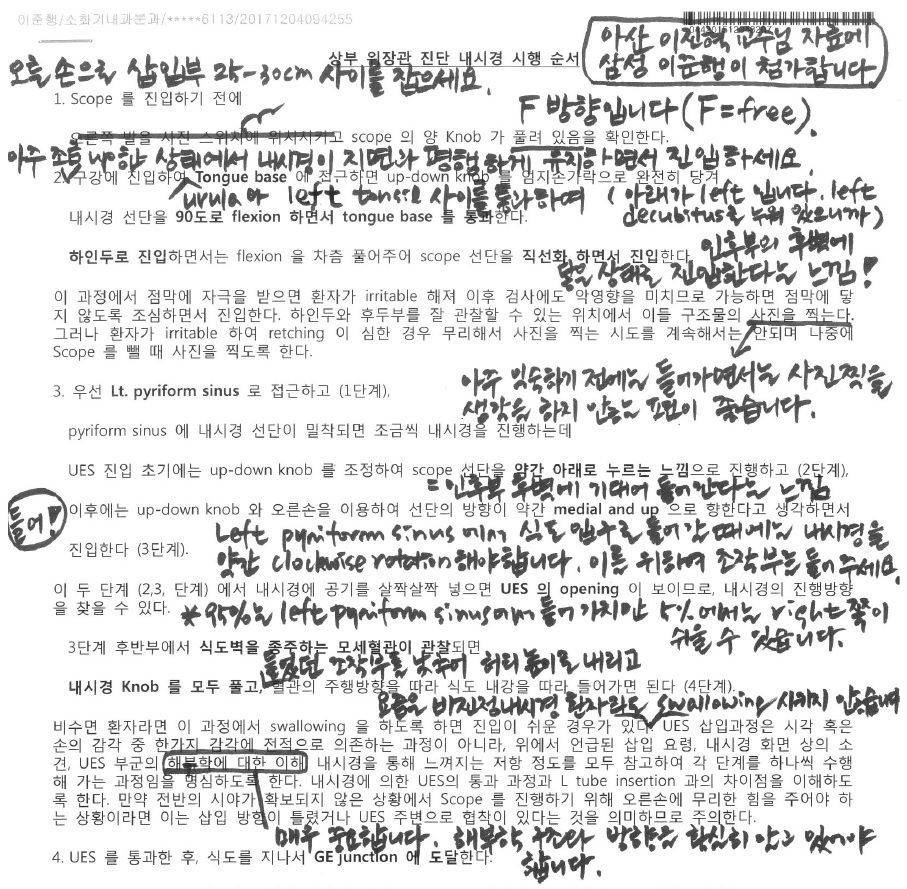 이준행/소화기내과분과/*****6113/20171204094255
아산 이진혁 교수님 자료에
삼성 이준행이 첨가합니다
상부 위장관 진단 내시경 시행 순서
오른손으로 삽입부 25-30cm 사이를 잡으세요.
1. Scope 를 진입하기 전에
F 방향입니다 (F=free).
오른쪽 발을 사진 스위치에 위치시키고 scope 의 양 Knob 가 풀려 있음을 확인한다.
아주 조금 up한 상태에서 내시경이 지면과 평행하게 유지하면서 진입하세요.
2. 구강에 진입하여 Tongue base 에 접근하면 up-down knob 를 엄지손가락으로 완전히 당겨
uvula와 left tonsil 사이를 통과하여 (아래가 left 입니다. left
decubitus로 누워 있으니까)
내시경 선단을 90도로 flexion 하면서 tongue base 를 통과한다.
하인두로 진입하면서는 flexion 을 차츰 풀어주어 scope 선단을 직선화 하면서 진입한다
인후부의 후벽에
닿은 상태로 진입한다는 느낌!
이 과정에서 점막에 자극을 받으면 환자가 irritable 해져 이후 검사에도 악영향을 미치므로 가능하면 점막에 닿
지 않도록 조심하면서 진입한다. 하인두와 후두부를 잘 관찰할 수 있는 위치에서 이들 구조물의 사진을 찍는다.
그러나 환자가 irritable 하여 retching 이 심한 경우 무리해서 사진을 찍는 시도를 계속해서는 안되며 나중에
Scope 를 뺄 때 사진을 찍도록 한다.
아주 익숙하기 전에는 들어가면서는 사진찍을
생각을 하지 않는 편이 좋습니다.
3. 우선 Lt. pyriform sinus 로 접근하고 (1단계),
pyriform sinus 에 내시경 선단이 밀착되면 조금씩 내시경을 진행하는데
UES 진입 초기에는 up-down knob 를 조정하여 scope 선단을 약간 아래로 누르는 느낌으로 진행하고 (2단계),
=인후부 후벽에 기대어 들어간다는 느낌
들어!
이후에는 up-down knob 와 오른손을 이용하여 선단의 방향이 약간 medial and up 으로 향한다고 생각하면서
Left pyriform sinus에서 식도 입구로 들어갈 때에는 내시경을
진입한다 (3단계).
약간 clockwise rotation해야합니다. 이를 위하여 조작부는 들어 주세요.
이 두 단계 (2,3, 단계) 에서 내시경에 공기를 살짝살짝 넣으면 UES 의 opening 이 보이므로, 내시경의 진행방향
을 찾을 수 있다.
* 95%는 left pyriform sinus에서 들어가지만 5%에서는 right쪽이
쉬울 수 있습니다.
3단계 후반부에서 식도벽을 종주하는 모세혈관이 관찰되면
들었던 조작부를 낮추어 허리 높이로 내리고
내시경 Knob 를 모두 풀고, 혈관의 주행방향을 따라 식도 내강을 따라 들어가면 된다 (4단계).
요즘은 비진정내시경 환자라도 swallowing 시키지 않습니다
비수면 환자라면 이 과정에서 swallowing 을 하도록 하면 진입이 쉬운 경우가 있다. UES 삽입과정은 시각 혹은
손의 감각 중 한가지 감각에 전적으로 의존하는 과정이 아니라, 위에서 언급된 삽입 요령, 내시경 화면 상의 소
견, UES 부근의 해부학에 대한 이해 내시경을 통해 느껴지는 저항 정도를 모두 참고하여 각 단계를 하나씩 수행
해 가는 과정임을 명심하도록 한다. 내시경에 의한 UES의 통과 과정과 L tube insertion 과의 차이점을 이해하도
록 한다. 만약 전반의 시야가 확보되지 않은 상황에서 Scope 를 진행하기 위해 오른손에 무리한 힘을 주어야 하
는 상황이라면 이는 삽입 방향이 틀렸거나 UES 주변으로 협착이 있다는 것을 의미하므로 주의한다.
매우 중요합니다. 해부학 구조와 방향을 확실히 알고 있어야
합니다.
4. UES 를 통과한 후, 식도를 지나서 GE junction 에 도달한다.